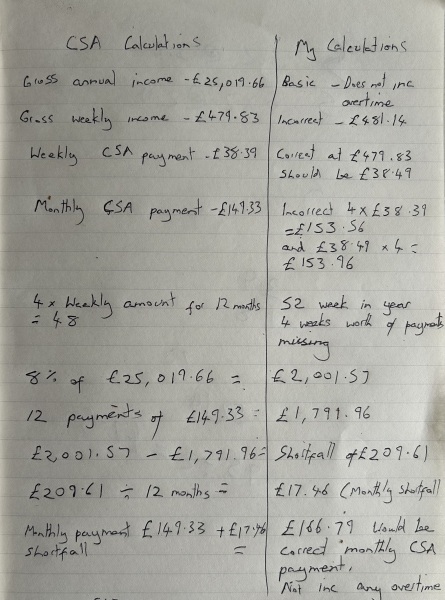 CSA Calculations
My Calculations
Gross annual income - £25,019.66
Basic - Does not inc
overtime
Gross weekly income - £479.83
Incorrect - £481.14
Weekly CSA payment - £38.39
Correct at £479.83
should be £38.49
Monthly CSA payment - £149.33
Incorrect 4 x £38.39
= £153.56
and £38.49 x 4 =
£153.96
4 x Weekly amount for 12 months
= 48
52 week in year
4 weeks worth of payments
missing
8% of £25,019.66 =
£2,001.57
12 payments of £149.33 =
£1,791.96
£2,001.57 - £1,791.96 =
Shortfall of £209.61
£209.61 ÷ 12 months =
£17.46 (Monthly shortfall
Monthly payment £149.33 + £17.46
shortfall =
£166.79 would be
correct monthly CSA
payment.
Not inc any overtime